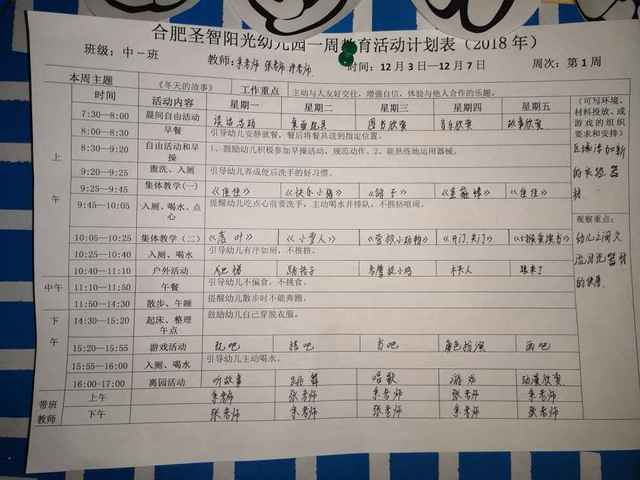 合肥圣智阳光幼儿园一周教育活动计划表（2018 年）
班级：中一班 教师：朱老师 张老师 时间：12 月 3 日—12 月 7 日 周次：第 1 周
本周主题 《冬天的故事》 工作重点 主动与人友好交往，增强自信，体验与他人合作的乐趣。
时间 活动内容 星期一 星期二 星期三 星期四 星期五 （可写环境、材料投放、或游戏的组织要求和安排）
上午
7:30—8:00 晨间自由活动 桌面玩具 图书欣赏 音乐欣赏 故事欣赏
8:00—8:30 早餐 引导幼儿安静就餐，餐后将餐具送到指定位置。
8:30—9:20 自由活动和早操 1、鼓励幼儿积极参加早操活动，规范动作。2、能熟练地运用器械。
9:20—9:25 盥洗、入厕 引导幼儿养成便后洗手的好习惯。
9:25—9:45 集体教学（一）
9:45—10:05 入厕、喝水、点心 提醒幼儿吃点心前要洗手，主动喝水并排队，不拥挤喧闹。
观察重点：
10:05—10:25 集体教学（二） 《落叶》 《小雪人》 《开门，关门》
10:25—10:40 入厕、喝水 引导幼儿有序如厕，不拥挤。
10:40—11:10 户外活动 老鹰捉小鸡 木头人
中午
11:10—11:50 午餐 引导幼儿不偏食，不挑食。
11:50—14:30 散步、午睡 提醒幼儿散步时不能奔跑。
下午
14:30—15:20 起床、整理 午点 鼓励幼儿自己穿脱衣服。
15:20—15:55 游戏活动 玩吧 搭吧 书吧 角色扮演 画吧
15:55—16:00 入厕、喝水 引导幼儿主动喝水。
16:00-17:00 离园活动 听故事 跳舞 唱歌 游戏 动漫欣赏
带班教师 上午 朱老师 张老师 朱老师 张老师 朱老师
下午 张老师 朱老师 张老师 朱老师 张老师